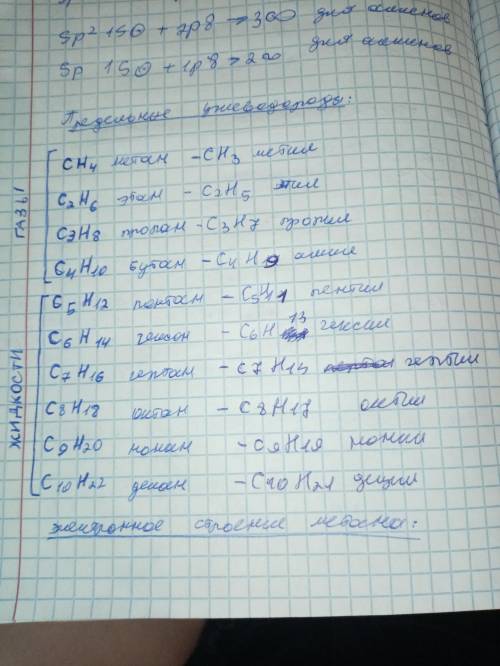 Sp² 1S + 2p8 → 3 для алкенов
Sp 1S + 1p8 → 2 для алкинов
Предельные углеводороды:
ГАЗЫ
CH4 метан – CH3 метил
C2H6 этан – C2H5 этил
C3H8 пропан – C3H7 пропил
C4H10 бутан – C4H9
ЖИДКОСТИ
C5H12 пентан – C5H11 пентил
C6H14 гексан – C6H13 гексил
C7H16 гептан – C7H15 гептил
C8H18 октан – C8H17 октил
C9H20 нонан – C9H19 нонил
C10H22 декан – C10H21 децил
электронное строение метана: